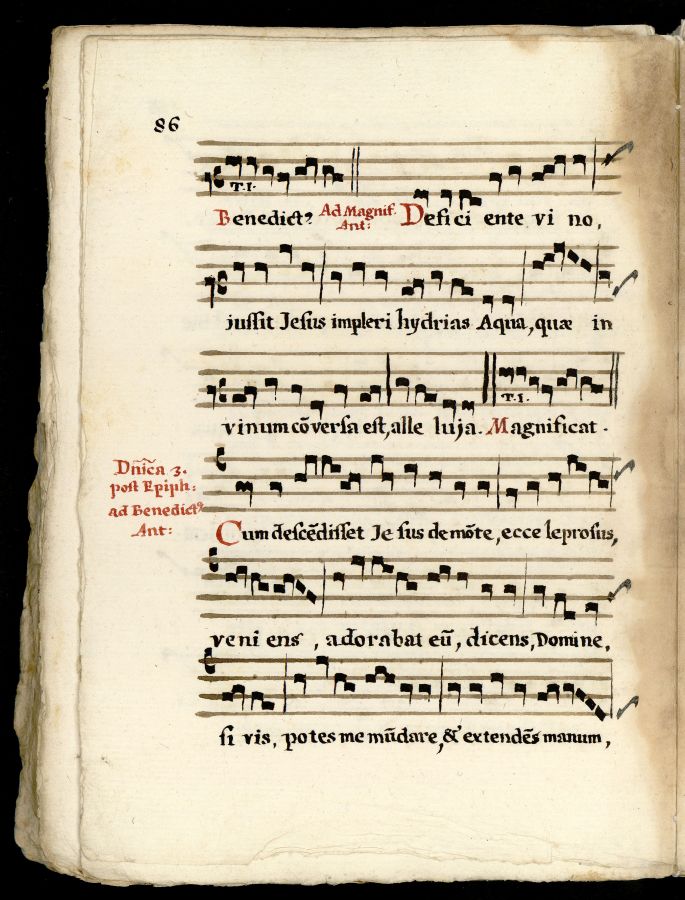 86
T.I.
Benedict9 Ad Magnif. Ant: Defici ente vi no,
jussit Jesus impleri hydrias Aqua, quæ in
T.I.
vinum cõversa est, alle luja. Magnificat.
Dnĩca 3.
post Epiph:
ad Benedict9
Ant:
Cum descẽdisset Je sus de mõte, ecce leprosus,
veni ens, adorabat eũ, dicens, Domine,
si vis, potes me mũdare, &' extendẽs manum,